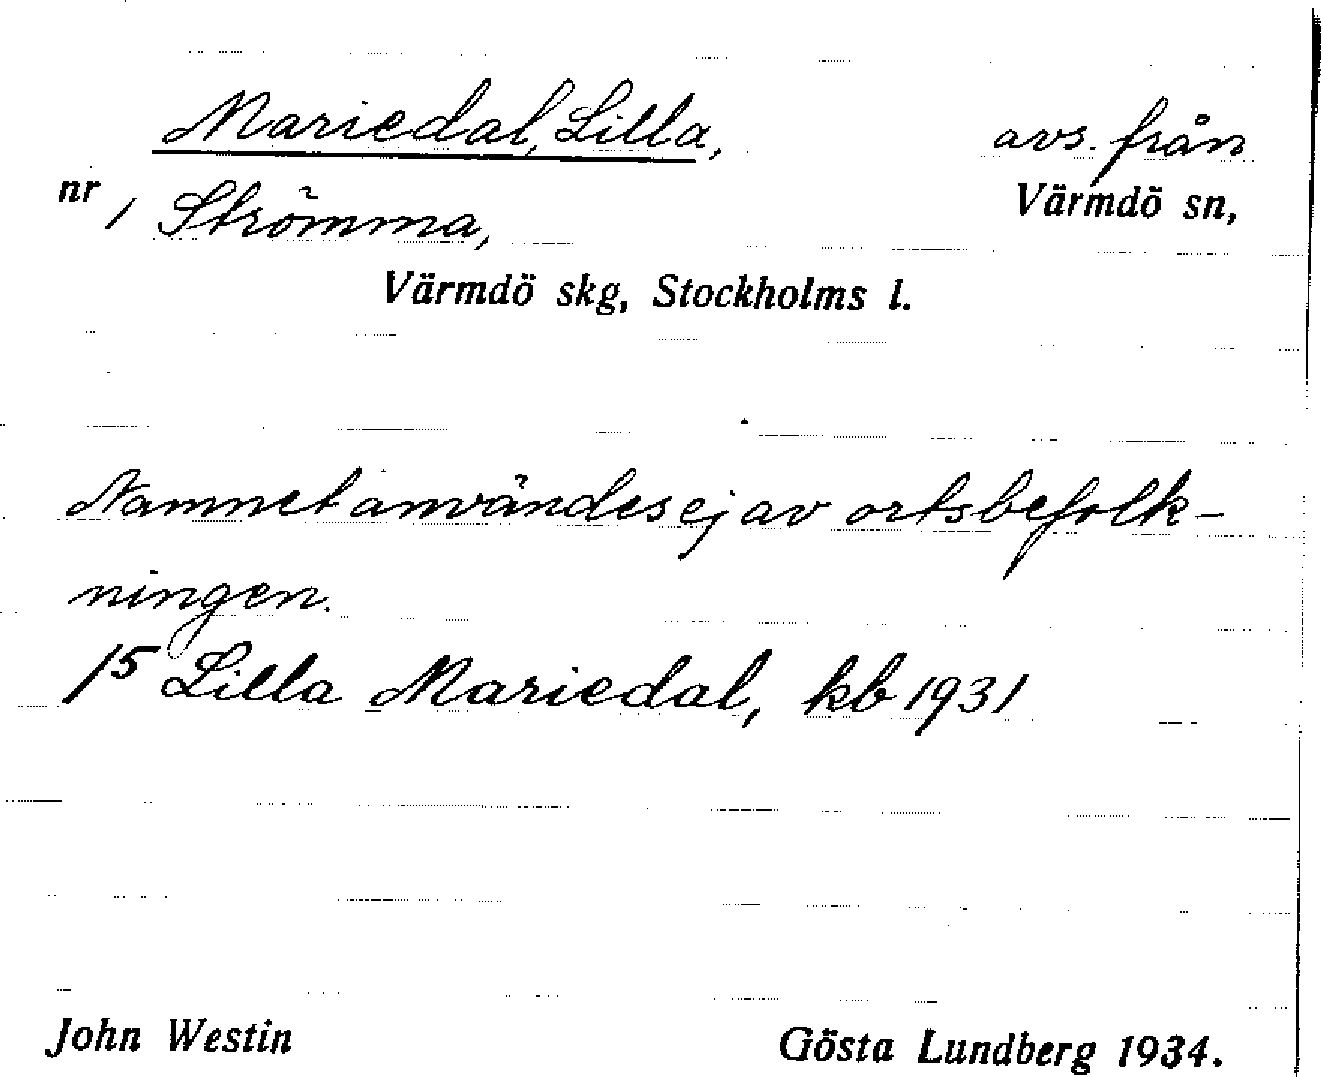 Mariedal, Lilla, avs. från
nr 1 Strömma, Värmdö sn,
Värmdö skg, Stockholms l.
Namnet användes ej av ortsbefolk-
ningen.
15 Lilla Mariedal, kb 1931
John Westin Gösta Lundberg 1934.